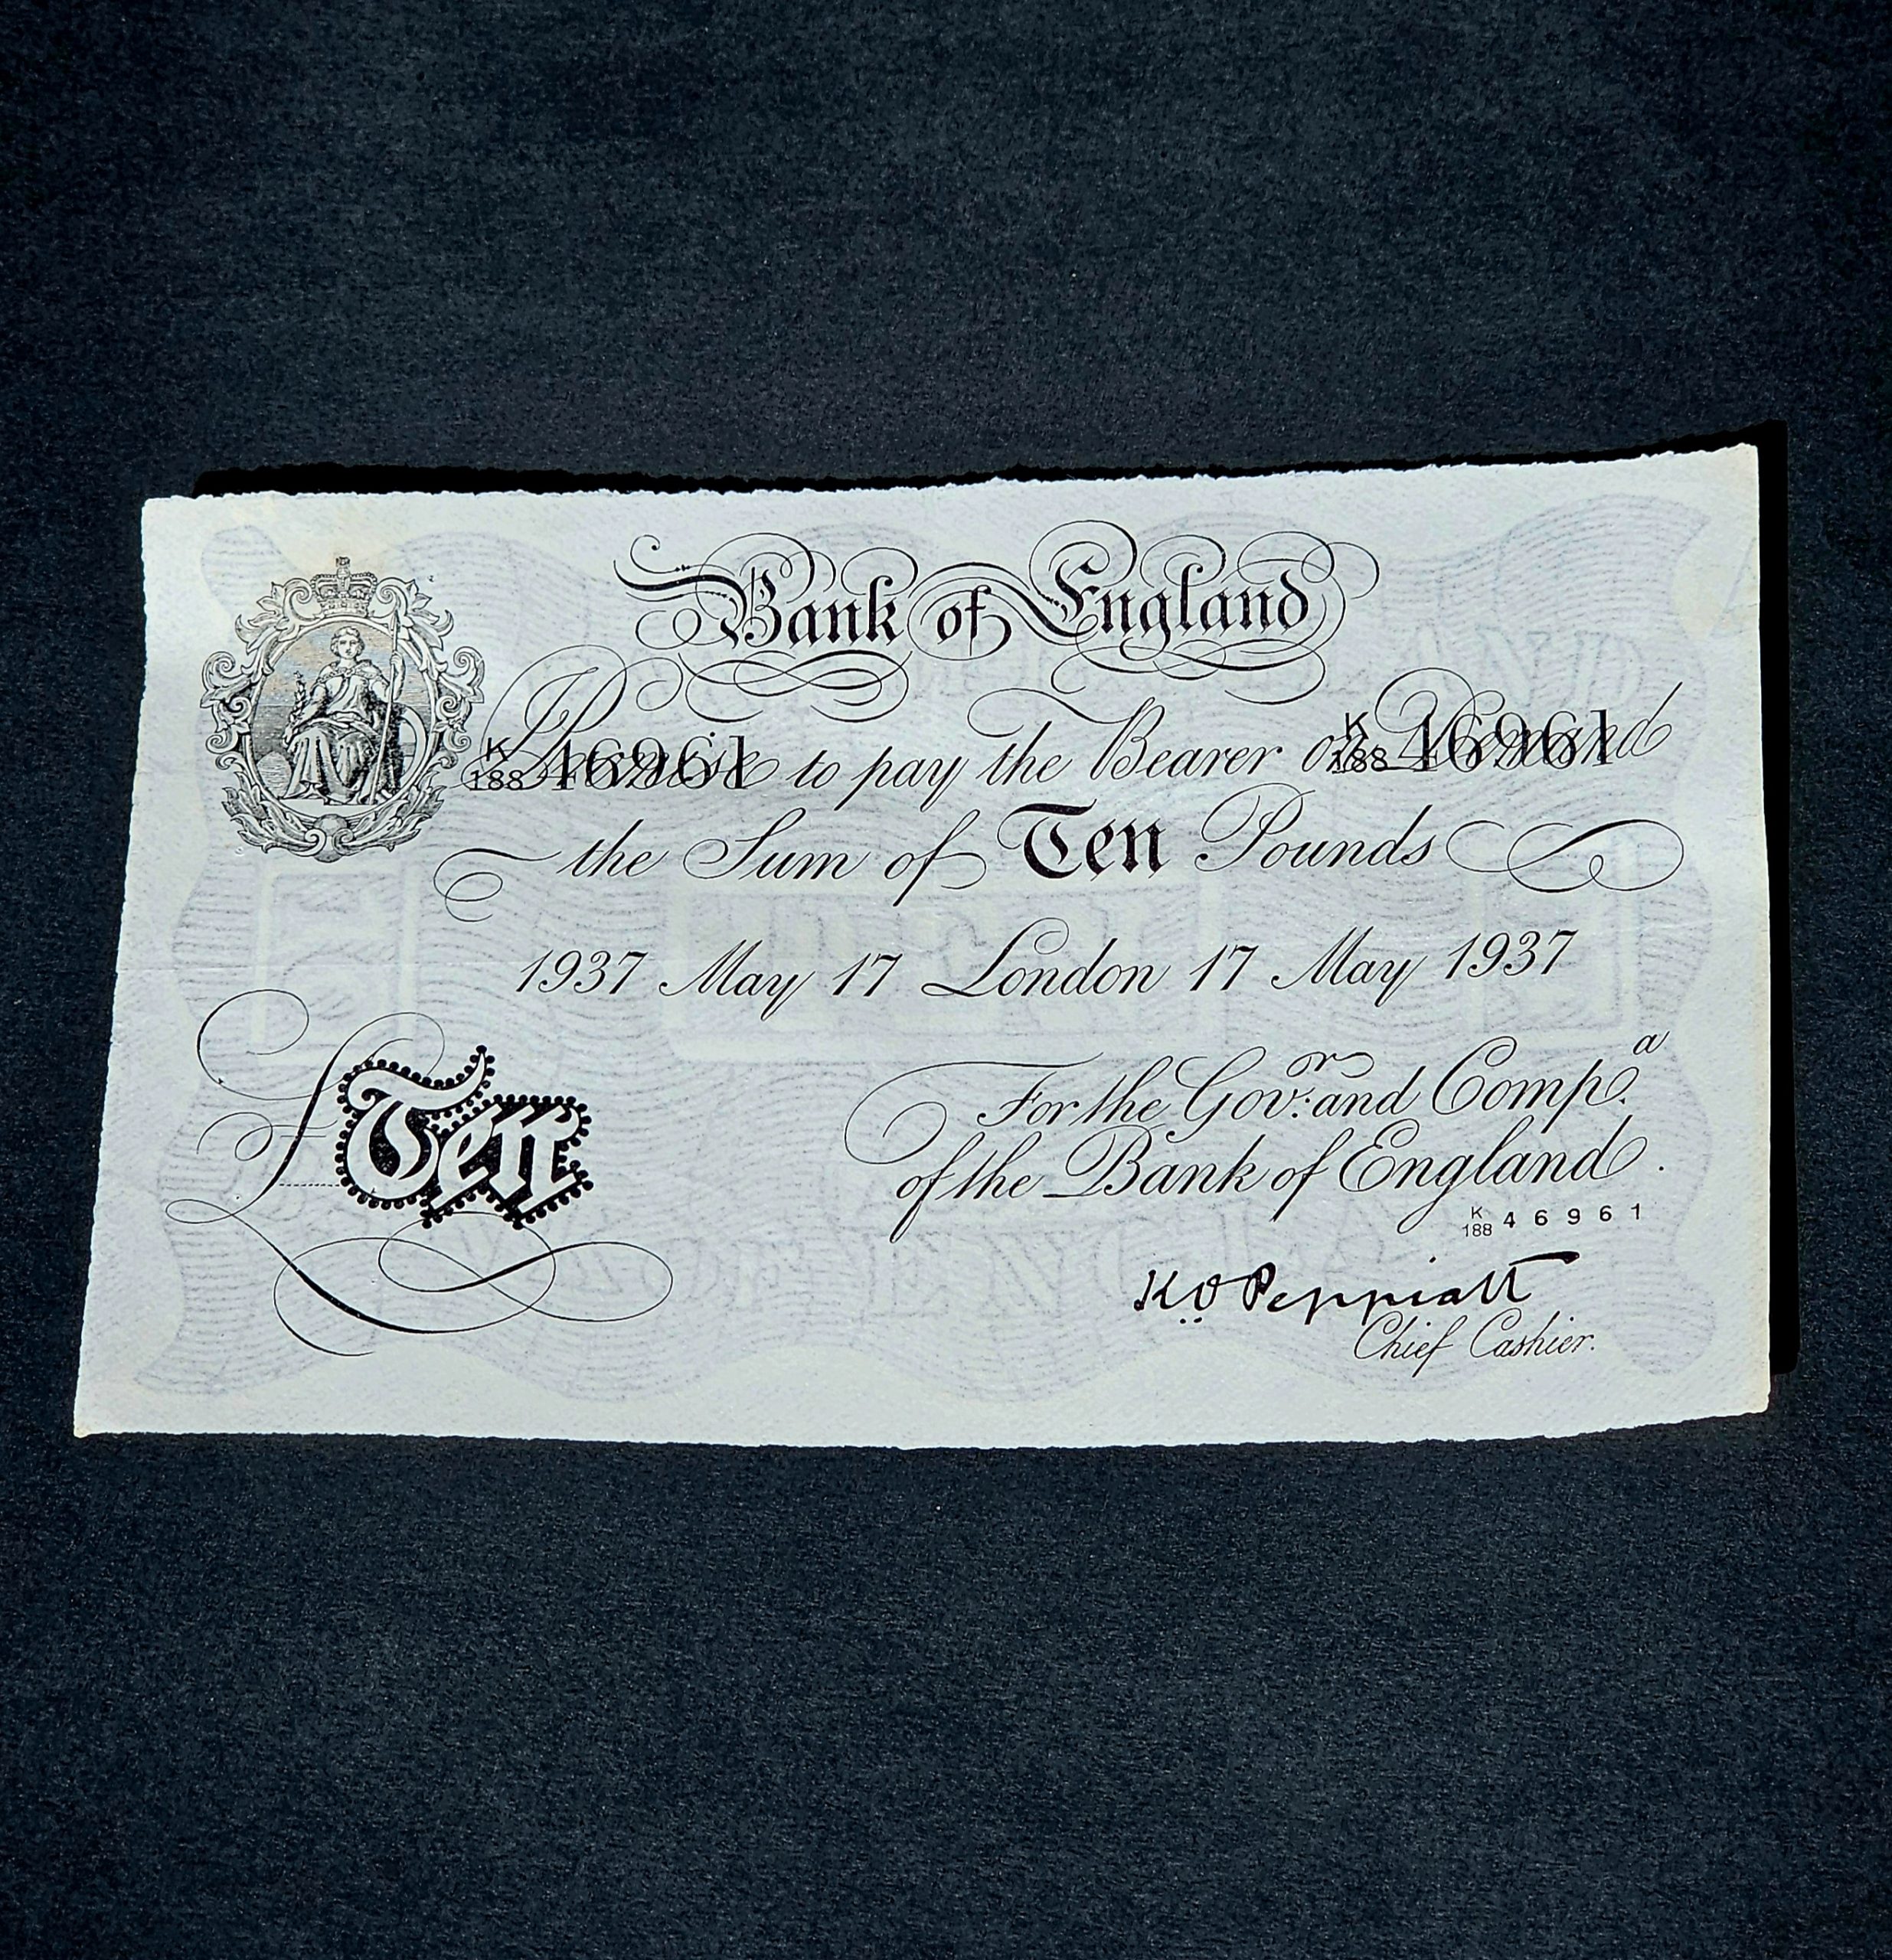 Bank of England
I Promise to pay the Bearer on Demand
K 188 46961 K 188 46961
the Sum of Ten Pounds
1937 May 17 London 17 May 1937
For the Gov:or and Comp.a
of the Bank of England.
£ Ten
K 188 46961
K O Peppiatt
Chief Cashier.